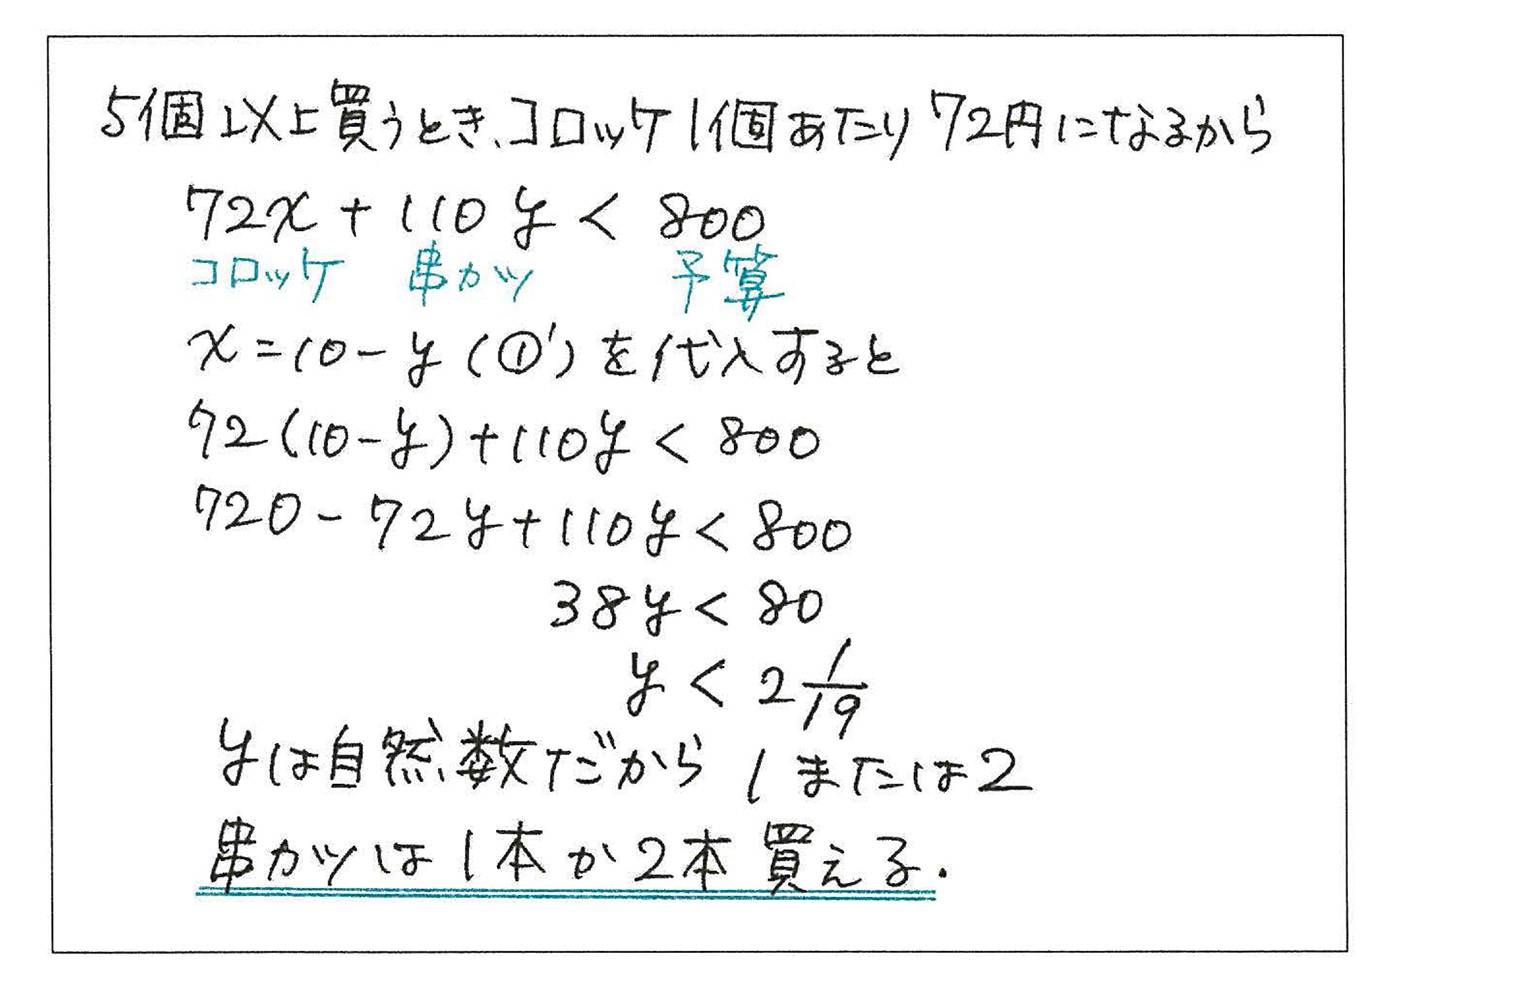 5個以上買うとき、コロッケ1個あたり72円になるから
72x + 110y < 800
コロッケ 串カツ 予算
x = 10 - y (①') を代入すると
72(10-y)+110y < 800
720 - 72y + 110y < 800
38y < 80
y < 2 1/19
yは自然数だから 1または2
串カツは1本か2本買える.